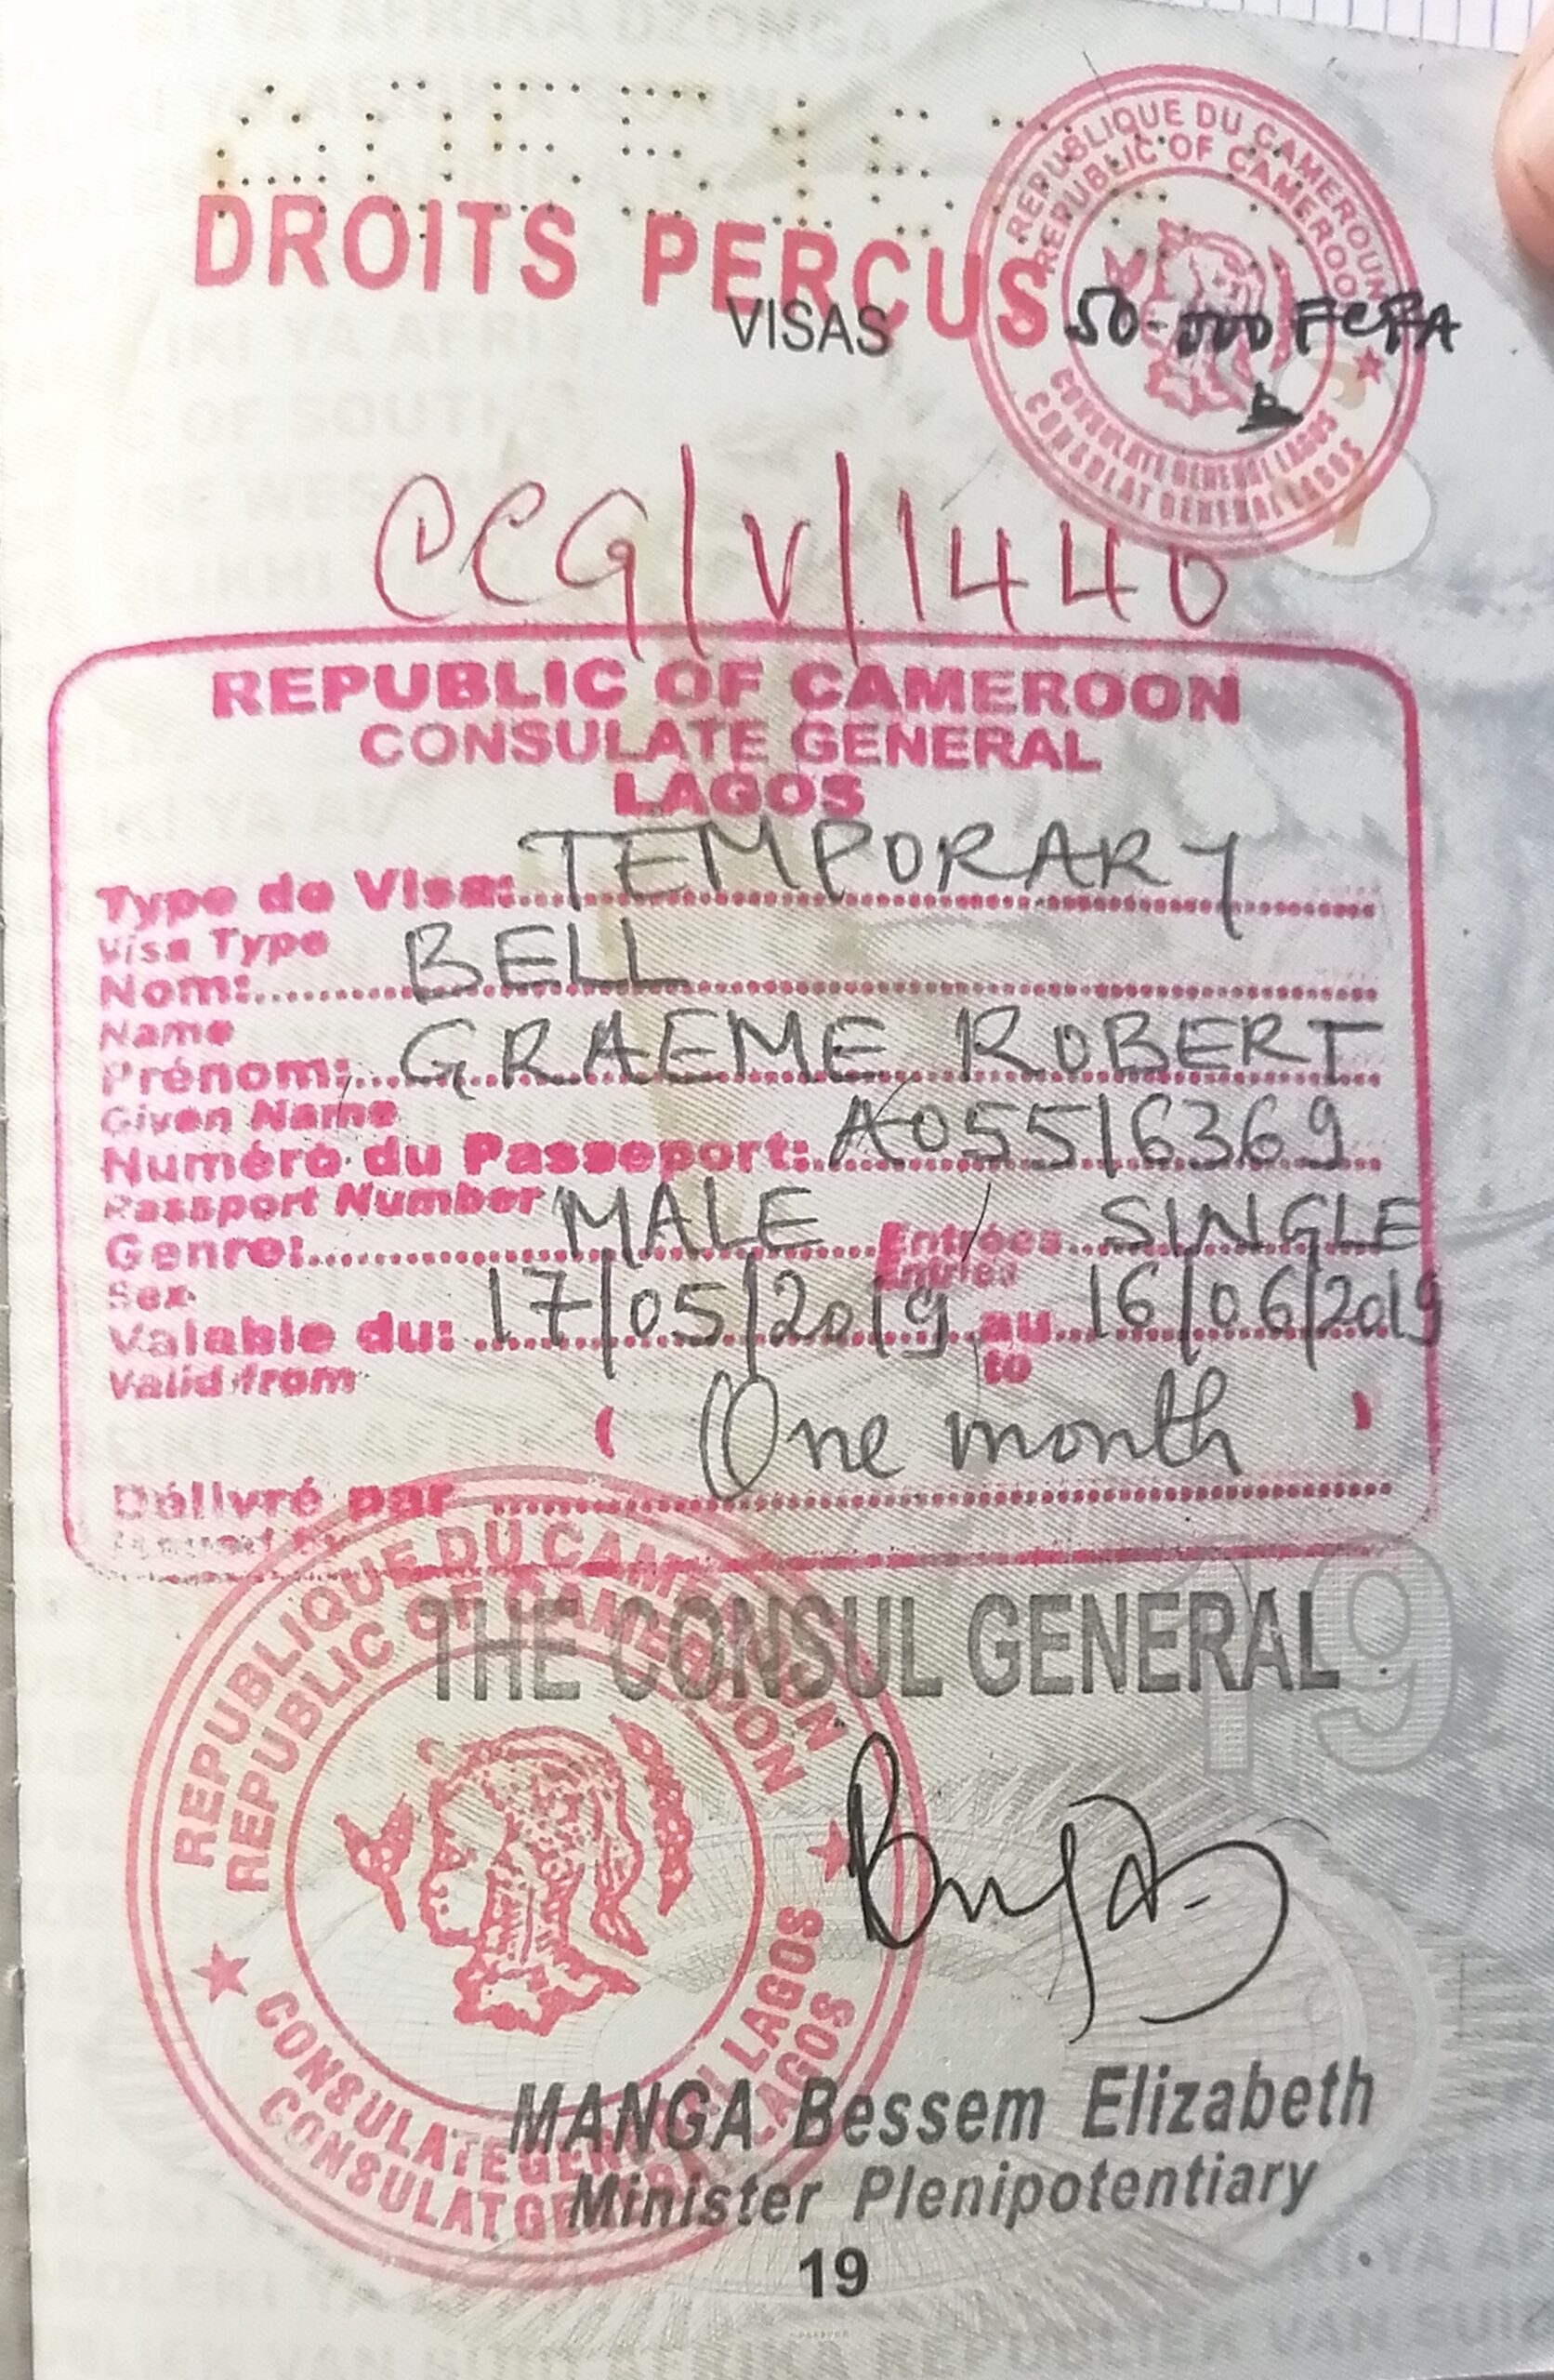 DROITS PERCUS
VISAS
REPUBLIQUE DU CAMEROUN
REPUBLIC OF CAMEROON
CONSULATE GENERAL LAGOS
CONSULAT GENERAL LAGOS
50.000 FCFA
CCG/V/1440
REPUBLIC OF CAMEROON
CONSULATE GENERAL
LAGOS
Type de Visa: TEMPORARY
Visa Type
Nom: BELL
Name
Prénom: GRAEME ROBERT
Given Name
Numéro du Passeport: A05516369
Passport Number
Genre: MALE Entrées SINGLE
Sex Entries
Valable du: 17/05/2019 au 16/06/2019
Valid from to
( One month )
Délivré par
Issued by
THE CONSUL GENERAL
19
REPUBLIQUE DU CAMEROUN
REPUBLIC OF CAMEROON
CONSULATE GENERAL LAGOS
CONSULAT GENERAL LAGOS
MANGA Bessem Elizabeth
Minister Plenipotentiary
19